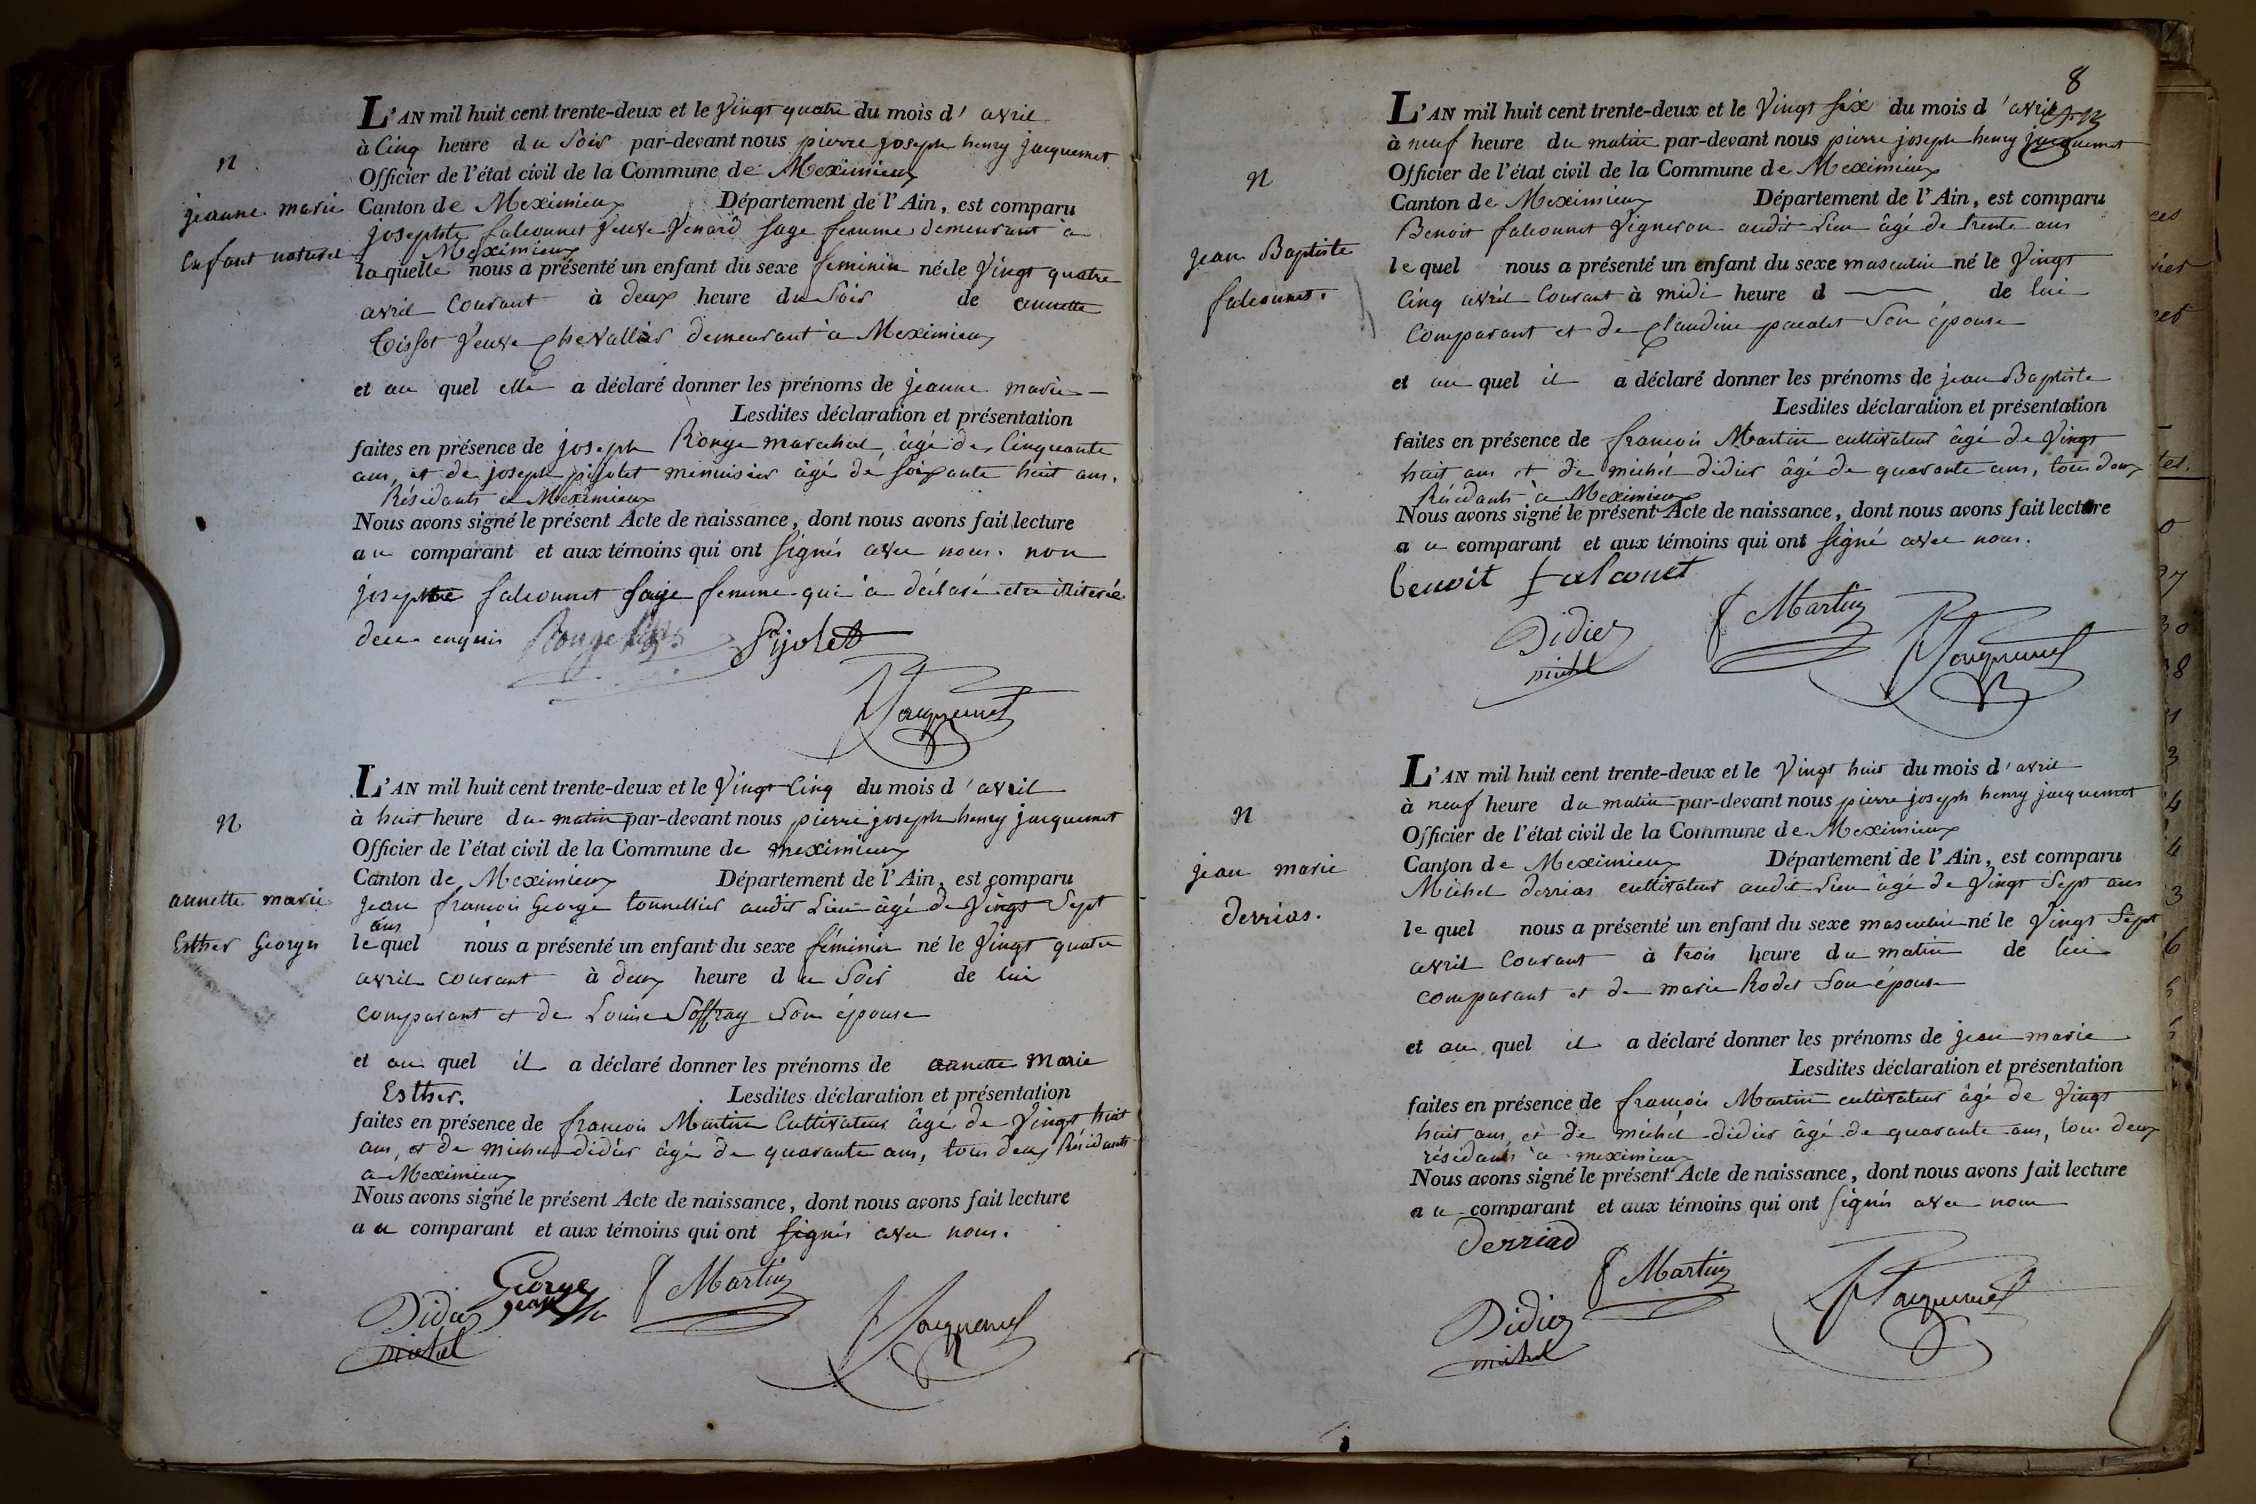 N
jeanne marie
Enfant naturel
L'AN mil huit cent trente-deux et le vingt quatre du mois d' avril
à Cinq heure du Soir par-devant nous pierre joseph henry jacquemet
Officier de l'état civil de la Commune de Meximieux
Canton de Meximieux Département de l'Ain, est comparu
josephte falconnet veuve venard sage femme demeurant a
Meximieux
laquelle nous a présenté un enfant du sexe feminin né le vingt quatre
avril Courant à deux heure du Soir de annette
tissot veuve chevallier demeurant a Meximieux
et au quel elle a déclaré donner les prénoms de jeanne marie
Lesdites déclaration et présentation
faites en présence de joseph Ronge marechal, âgé de Cinquante
ans, et de joseph pijolet menuisier âgé de soixante huit ans.
Résidants a Meximieux
Nous avons signé le présent Acte de naissance, dont nous avons fait lecture
au comparant et aux témoins qui ont signés avec nous. non
josephte falconnet sage femme qui a déclaré etre illiterée
de ce enquis Ronge Pijolet
Jacquemet
N
annette marie
Esther George
L'AN mil huit cent trente-deux et le vingt Cinq du mois d' avril
à huit heure du matin par-devant nous pierre joseph henry jacquemet
Officier de l'état civil de la Commune de meximieux
Canton de Meximieux Département de l'Ain, est comparu
jean francois George tonnellier audit Lieu âgé de vingt Sept
ans
lequel nous a présenté un enfant du sexe féminin né le vingt quatre
avril courant à deux heure du Soir de lui
comparant et de Louise Soffray Son épouse
et au quel il a déclaré donner les prénoms de annette Marie
Esther. Lesdites déclaration et présentation
faites en présence de francois Martin Cultivateur âgé de vingt huit
ans, et de michel didier âgé de quarante ans, tous deux Résidants
a Meximieux
Nous avons signé le présent Acte de naissance, dont nous avons fait lecture
au comparant et aux témoins qui ont signés avec nous.
George
jean
f Martin
Didier
michel
Jacquemet
8
N
jean Baptiste
falconnet.
L'AN mil huit cent trente-deux et le vingt six du mois d' avril
à neuf heure du matin par-devant nous pierre joseph henry jacquemet
Officier de l'état civil de la Commune de Meximieux
Canton de Meximieux Département de l'Ain, est comparu
Benoit falconnet vigneron audit Lieu âgé de trente ans
lequel nous a présenté un enfant du sexe masculin né le vingt
Cinq avril Courant à midi heure d de lui
comparant et de Claudine pacalet Son épouse
et au quel il a déclaré donner les prénoms de jean Baptiste
Lesdites déclaration et présentation
faites en présence de francois Martin cultivateur âgé de vingt
huit ans et de michel didier âgé de quarante ans, tous deux
Résidants a Meximieux
Nous avons signé le présent Acte de naissance, dont nous avons fait lecture
au comparant et aux témoins qui ont signé avec nous.
benoit falconet
f Martin
Didier
michel
Jacquemet
N
jean marie
derrias.
L'AN mil huit cent trente-deux et le vingt huit du mois d' avril
à neuf heure du matin par-devant nous pierre joseph henry jacquemet
Officier de l'état civil de la Commune de Meximieux
Canton de Meximieux Département de l'Ain, est comparu
Michel derrias cultivateur audit Lieu âgé de vingt Sept ans
lequel nous a présenté un enfant du sexe masculin né le vingt Sept
avril Courant à trois heure du matin de lui
comparant et de marie Rodet Son épouse
et au quel il a déclaré donner les prénoms de jean marie
Lesdites déclaration et présentation
faites en présence de francois Martin cultivateur âgé de vingt
huit ans, et de michel didier âgé de quarante ans, tous deux
résidants a meximieux
Nous avons signé le présent Acte de naissance, dont nous avons fait lecture
au comparant et aux témoins qui ont signés avec nous
derriad
f Martin
Didier
michel
Jacquemet